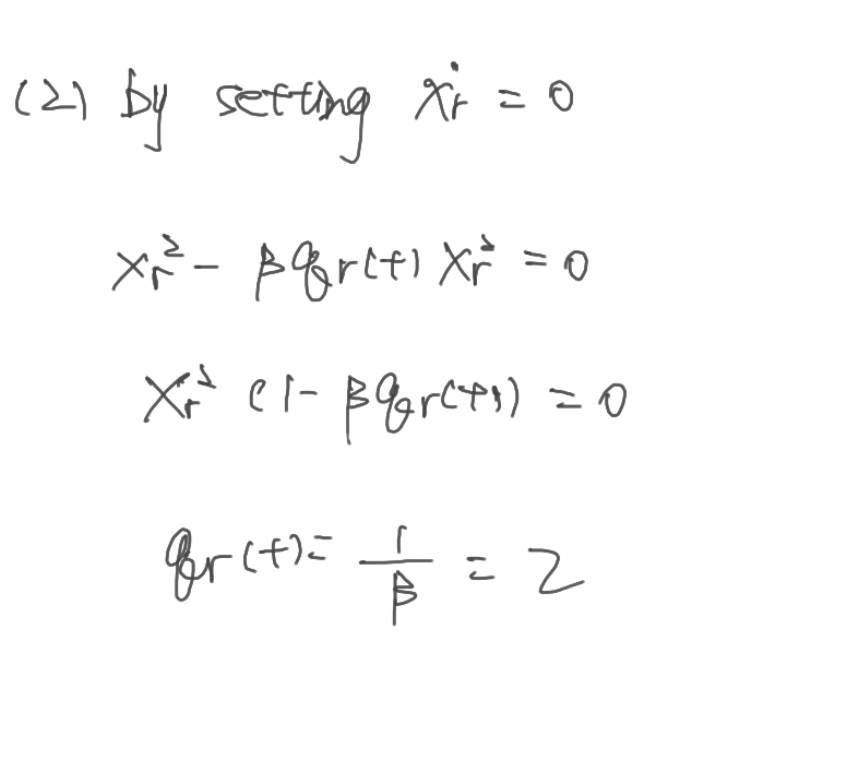 (2) by setting ẋr = 0
xr² - βqr(t) xr² = 0
xr² (1 - βqr(t)) = 0
qr(t) = 1/β = 2